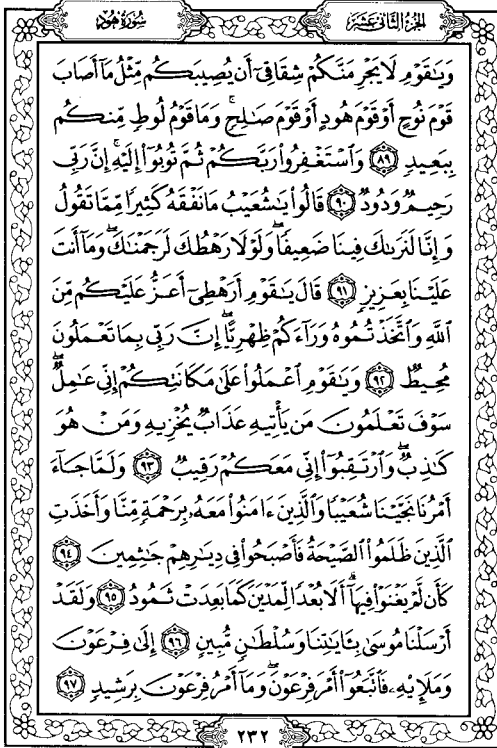 سُورَةُ هُودٍ
الجزء الثاني عشر
وَيَٰقَوْمِ لَا يَجْرِمَنَّكُمْ شِقَاقِىٓ أَن يُصِيبَكُم مِّثْلُ مَآ أَصَابَ
قَوْمَ نُوحٍ أَوْ قَوْمَ هُودٍ أَوْ قَوْمَ صَٰلِحٍۚ وَمَا قَوْمُ لُوطٍ مِّنكُم
بِبَعِيدٍ ٨٩ وَٱسْتَغْفِرُوا۟ رَبَّكُمْ ثُمَّ تُوبُوٓا۟ إِلَيْهِۚ إِنَّ رَبِّى
رَحِيمٌ وَدُودٌ ٩٠ قَالُوا۟ يَٰشُعَيْبُ مَا نَفْقَهُ كَثِيرًا مِّمَّا تَقُولُ
وَإِنَّا لَنَرَىٰكَ فِينَا ضَعِيفًاۖ وَلَوْلَا رَهْطُكَ لَرَجَمْنَٰكَۖ وَمَآ أَنتَ
عَلَيْنَا بِعَزِيزٍ ٩١ قَالَ يَٰقَوْمِ أَرَهْطِىٓ أَعَزُّ عَلَيْكُم مِّنَ
ٱللَّهِ وَٱتَّخَذْتُمُوهُ وَرَآءَكُمْ ظِهْرِيًّاۖ إِنَّ رَبِّى بِمَا تَعْمَلُونَ
مُحِيطٌ ٩٢ وَيَٰقَوْمِ ٱعْمَلُوا۟ عَلَىٰ مَكَانَتِكُمْ إِنِّى عَٰمِلٌۖ
سَوْفَ تَعْلَمُونَ مَن يَأْتِيهِ عَذَابٌ يُخْزِيهِ وَمَنْ هُوَ
كَٰذِبٌۖ وَٱرْتَقِبُوٓا۟ إِنِّى مَعَكُمْ رَقِيبٌ ٩٣ وَلَمَّا جَآءَ
أَمْرُنَا نَجَّيْنَا شُعَيْبًا وَٱلَّذِينَ ءَامَنُوا۟ مَعَهُۥ بِرَحْمَةٍ مِّنَّا وَأَخَذَتِ
ٱلَّذِينَ ظَلَمُوا۟ ٱلصَّيْحَةُ فَأَصْبَحُوا۟ فِى دِيَٰرِهِمْ جَٰثِمِينَ ٩٤
كَأَن لَّمْ يَغْنَوْا۟ فِيهَآۗ أَلَا بُعْدًا لِّمَدْيَنَ كَمَا بَعِدَتْ ثَمُودُ ٩٥ وَلَقَدْ
أَرْسَلْنَا مُوسَىٰ بِـَٔايَٰتِنَا وَسُلْطَٰنٍ مُّبِينٍ ٩٦ إِلَىٰ فِرْعَوْنَ
وَمَلَإِي۟هِۦ فَٱتَّبَعُوٓا۟ أَمْرَ فِرْعَوْنَۖ وَمَآ أَمْرُ فِرْعَوْنَ بِرَشِيدٍ ٩٧
٢٣٢